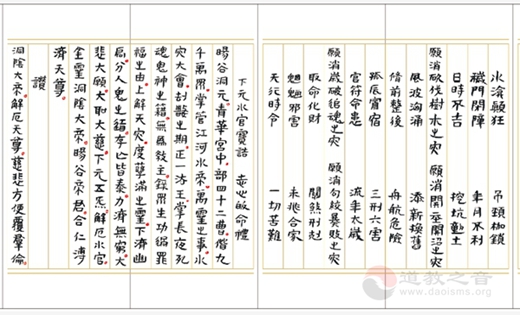 水滄顛狂　吊頸枷鎖
藏門關障　年月不利
日時不吉　挖坑動土
願消砍伐樹木之灾　願消開塋開沼之灾
風波洶涌　添新換舊
修前整後　舟航危險
孤辰寡宿　三刑六害
官符命患　流年太歲
願消 破 魂之灾　願消勾絞暴敗之灾
取命化財　關煞刑尅
魍魎邪害　未兆合家
天行時令　一切苦難
下元水官寳誥　志心皈命禮
暘谷洞元。青華宮中。部四十二曹。偕九
千萬眾。掌管江河水帝萬靈之事。水
灾大會。劫數之期。正一法王。掌長夜死
魂鬼神之籍。無爲教主。錄眾生功過罪
福之由。上解天灾。度業滿之靈。下濟幽
扃。分人鬼之籍。存亡皆泰。力濟無窮。大
悲大願。大聖大慈。下元五炁。解厄水官。
金靈洞陰大帝。暘谷帝君。合仁溥
濟天尊。
讃
洞陰大帝。解厄天尊。慈悲方便覆羣倫
道教之音
www.daoisms.org